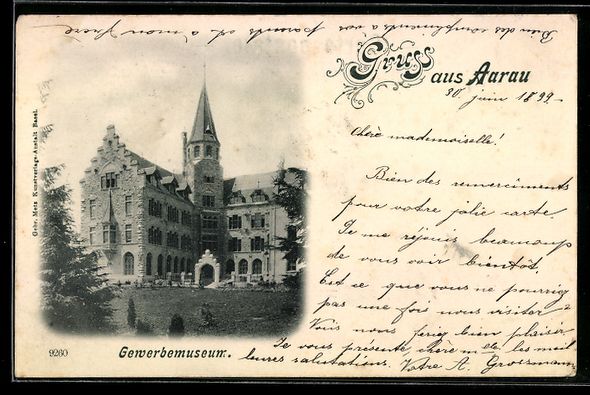 Bien des compliments à vos parents et à mon frère
Gruss aus Aarau
30. juin 1899
Chère mademoiselle!
Bien des remerciments
pour votre jolie carte.
Je me réjouis beaucoup
de vous voir bientôt.
Est ce que vous ne pourrig
pas une fois nous visiter?
Vous nous ferig bien plaisir
Je vous présente, chère mlle, les meil
leures salutations. Votre A. Grossmann
Gebr. Metz Kunstverlags-Anstalt Basel.
9260
Gewerbemuseum.